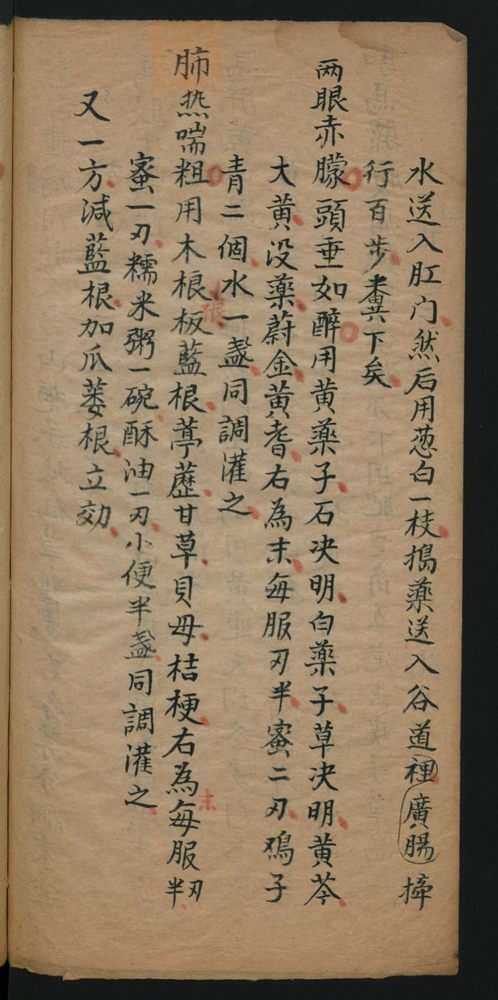 水送入肛门然后用葱白一枝搗藥送入谷道裡廣腸搼
行百步糞下矣
两眼赤朦頭垂如醉用黄藥子石决明白藥子草决明黄芩
大黄没藥蔚金黄耆右為末每服刄半蜜二刄鳮子
青二個水一盞同調灌之
肺热喘粗用木根板藍根葶藶甘草貝母桔梗右為末每服刄半
蜜一刄糯米粥一碗酥油一刄小便半盞同調灌之
又一方減藍根加瓜蒌根立効